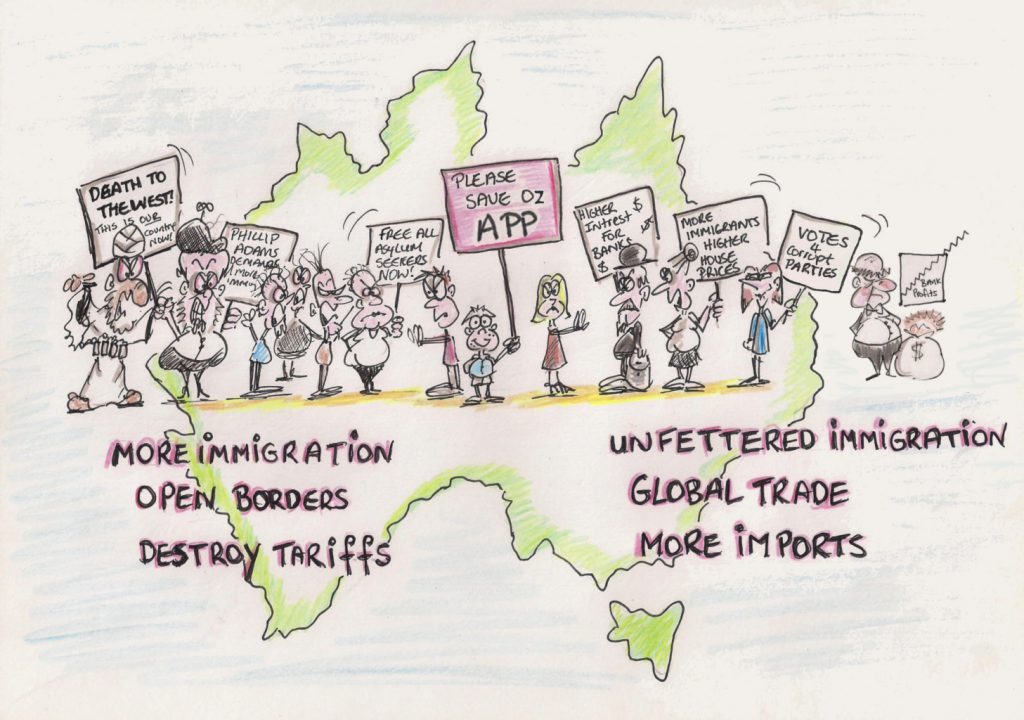 DEATH TO
THE WEST!
THIS IS OUR
Country
NOW!
PHILLIP
ADAMS
DEMANDS
MORE
FREE ALL
ASYLUM
SEEKERS
NOW!
PLEASE
SAVE OZ
APP
HIGHER $
INTREST
FOR
BANKS $
$
MORE
IMMIGRANTS
HIGHER
HOUSE
PRICES
VOTES
4
CORRUPT
PARTIES
BANK
PROFITS
$
MORE IMMIGRATION
OPEN BORDERS
DESTROY TARIFFS
UNFETTERED IMMIGRATION
GLOBAL TRADE
MORE IMPORTS